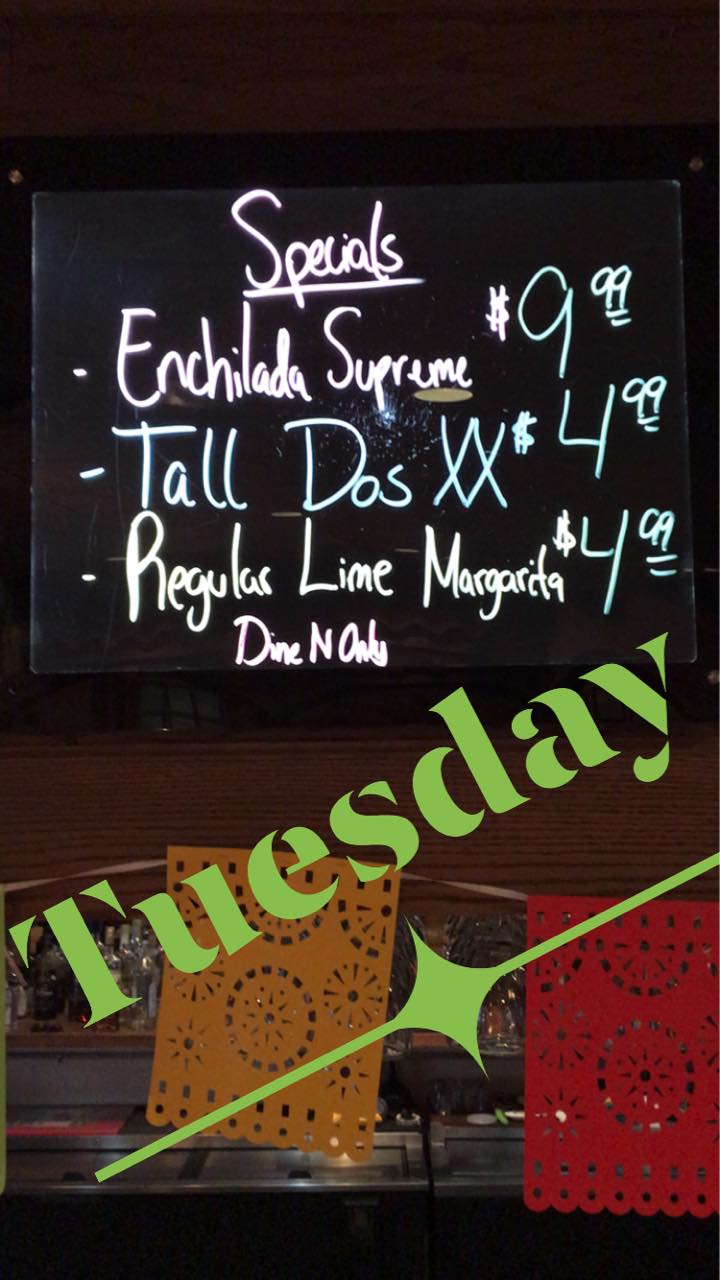 Specials
- Enchilada Supreme $9.99
- Tall Dos XX $4.99
- Regular Lime Margarita $4.99
Dine N Only
Tuesday